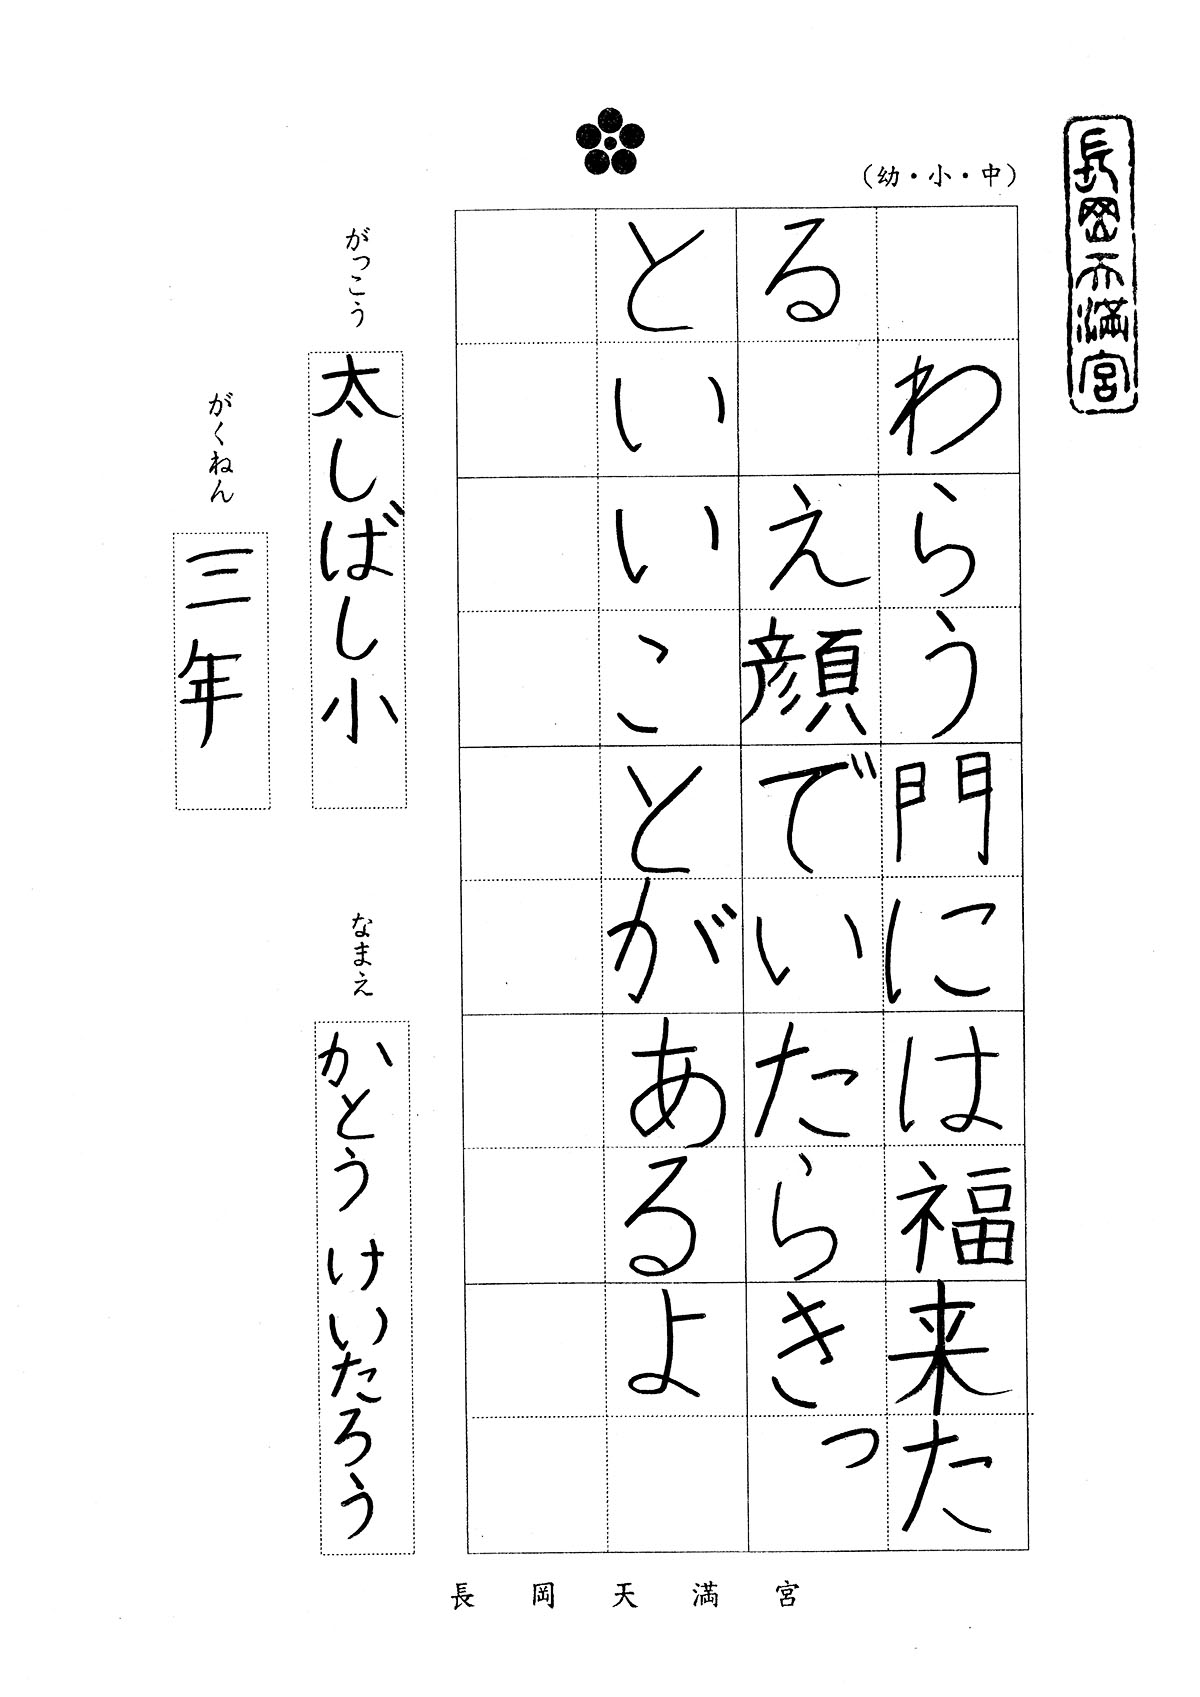 長岡天満宮
（幼・小・中）
わらう門には福来た
る えがおでいたらきっ
といいことがあるよ
がっこう
太しばし小
がくねん
三年
なまえ
かとう けいたろう
長岡天満宮